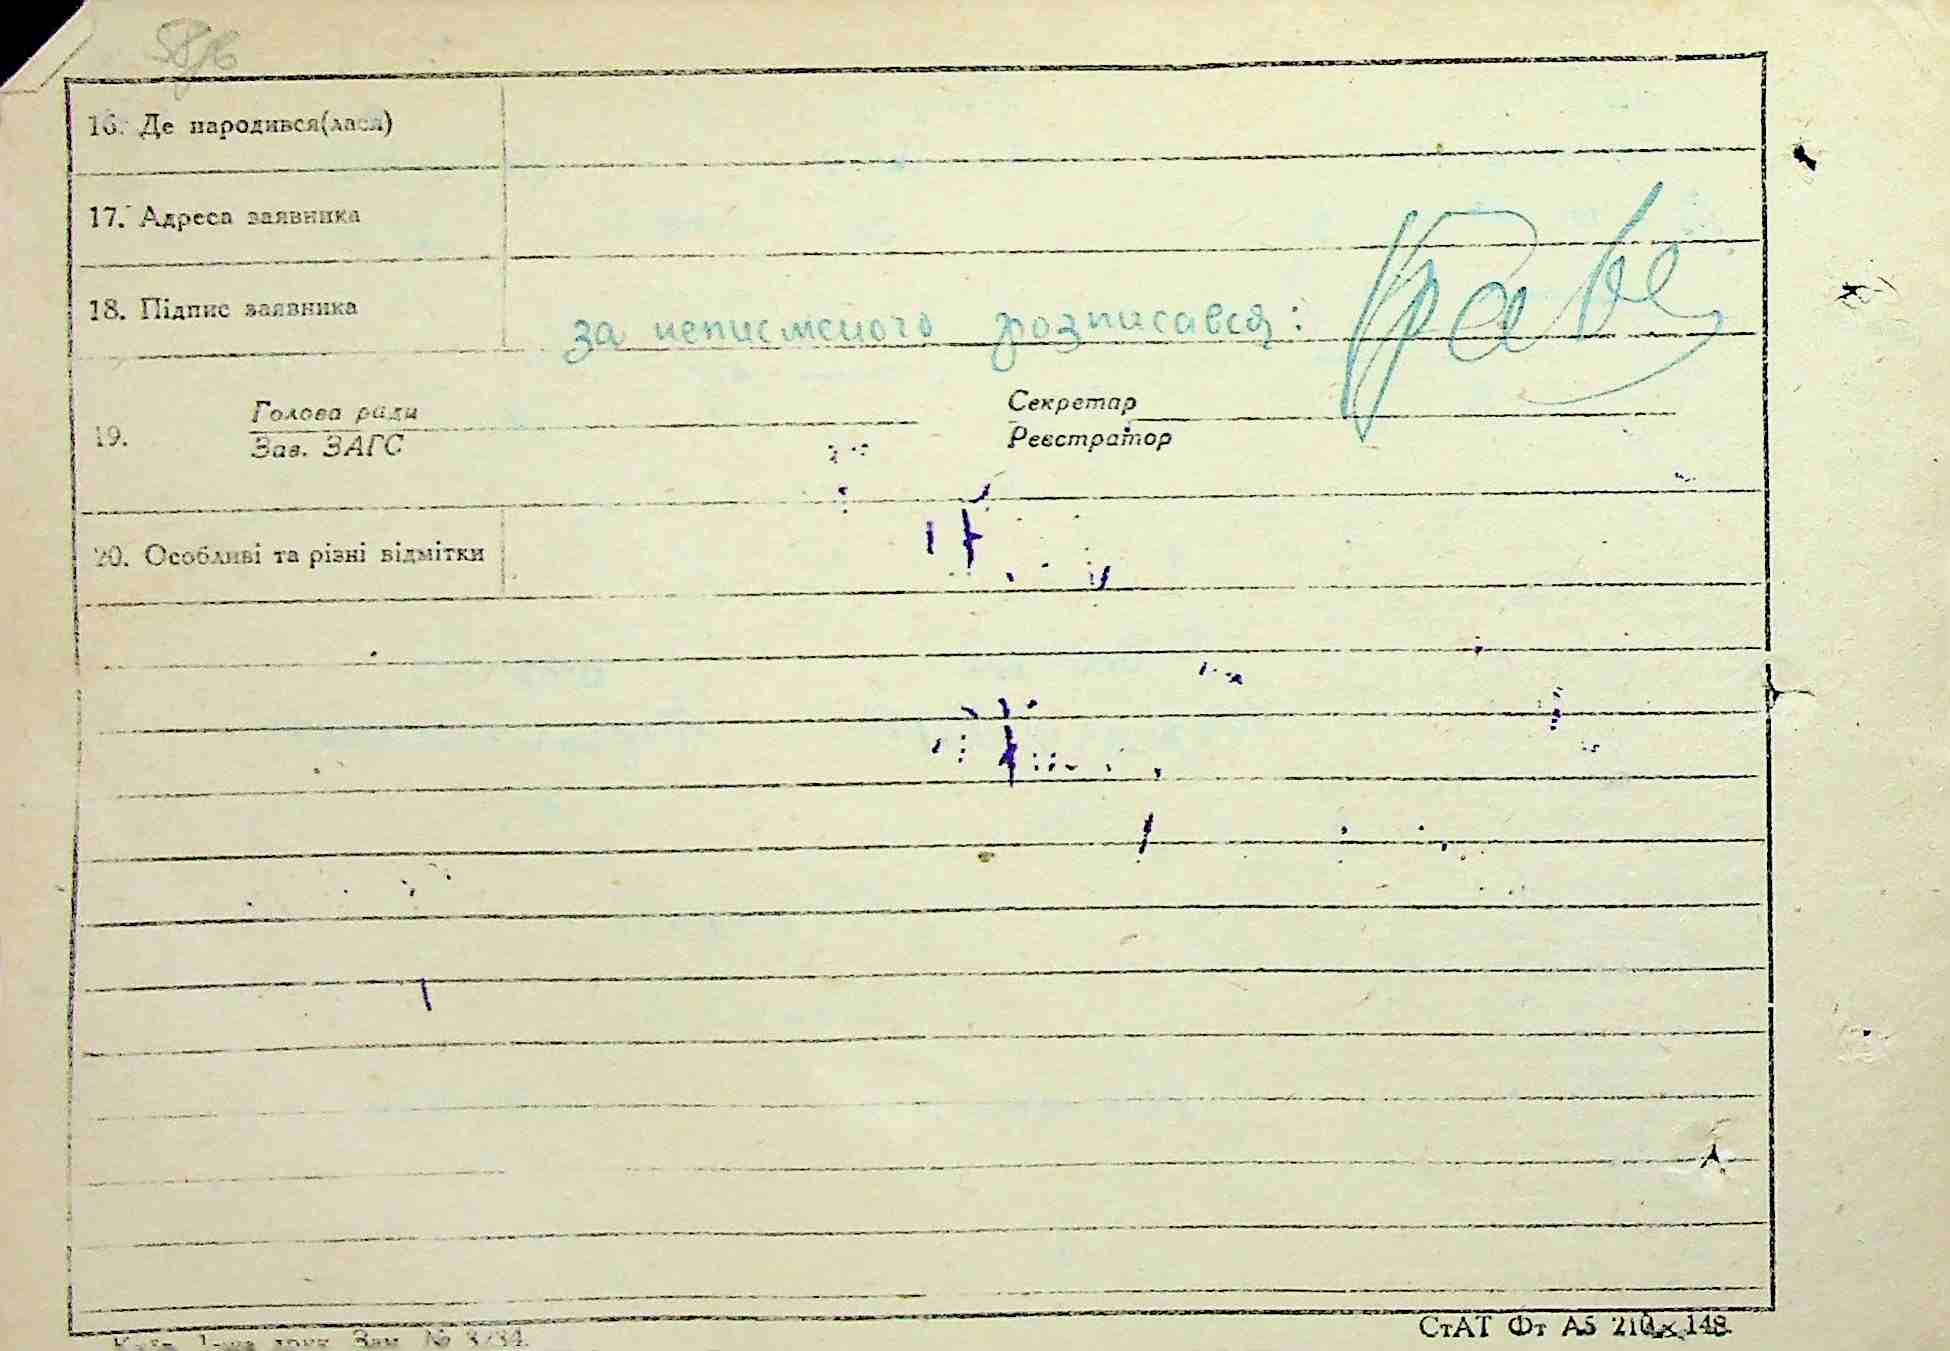 16. Де народився(лася)
17. Адреса заявника
18. Підпис заявника за неписмєного розписався:
Голова ради Секретар
19.
Зав. ЗАГС Реєстратор
20. Особливі та різні відмітки
Зам. № 3734.
СтАТ Фт А5 210×148.